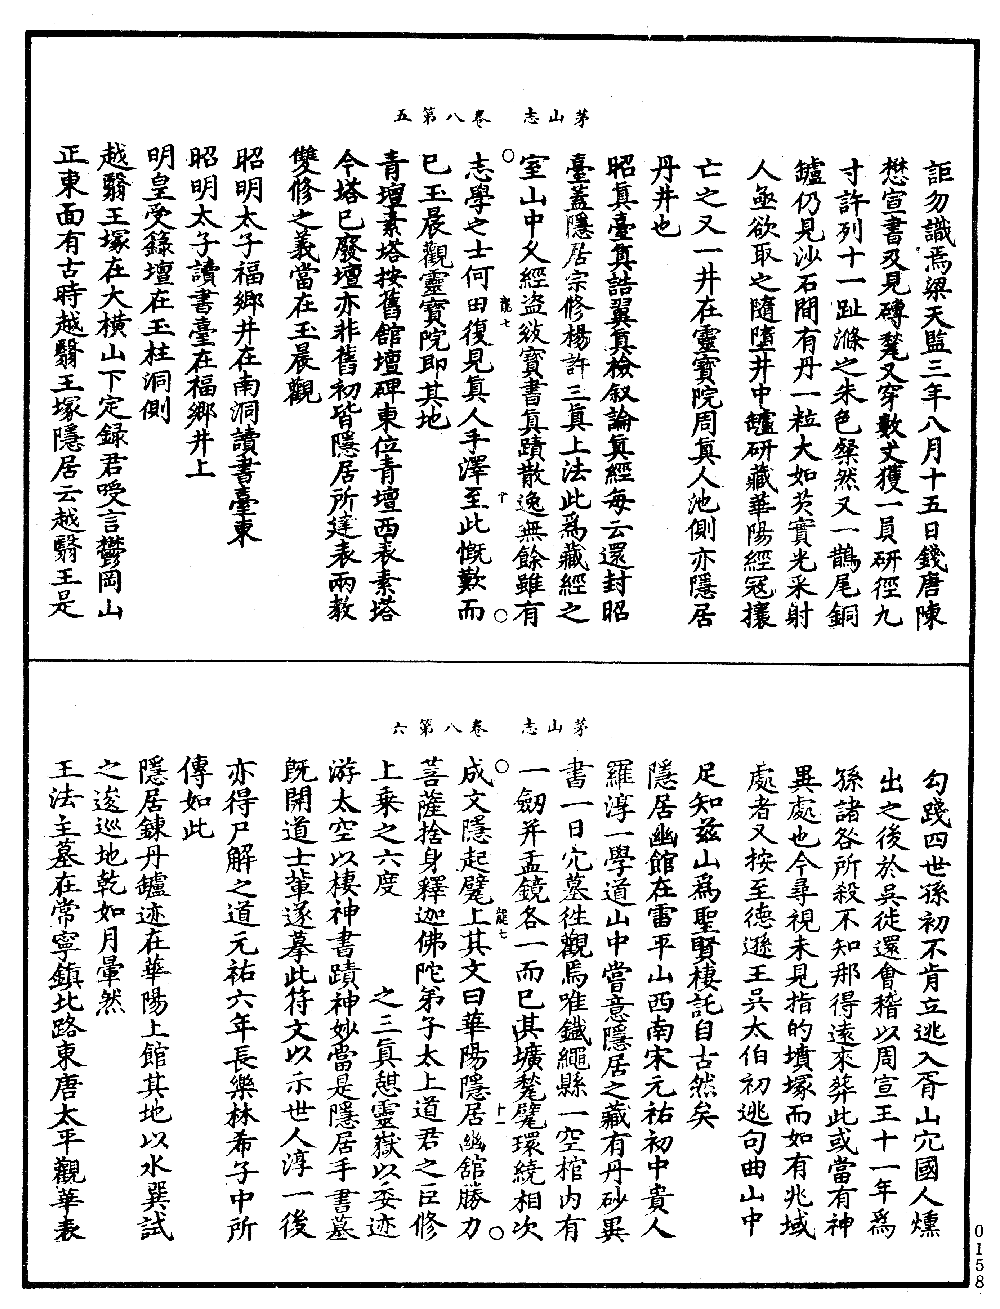 茅山志　卷八第五
詎勿識焉梁天監三年八月十五日錢唐陳
懋宣書及見磚甃又穿數丈獲一員研徑九
寸許列十一趾滌之朱色粲然又一鵲尾銅
鑪仍見沙石間有丹一粒大如芡實光采射
人亟欲取之隨墮井中鑪研藏華陽經冦攘
亡之又一井在靈寶院周真人池側亦隱居
丹井也
昭真臺真誥翼真檢叙論真經每云還封昭
臺蓋隱居宗修楊許三真上法此爲藏經之
室山中乆經盜敚寶書真蹟散逸無餘雖有
志學之士何田復見真人手澤至此慨歎而
已玉晨觀靈寶院即其地
青壇素塔按舊館壇碑東位青壇西表素塔
今塔已廢壇亦非舊初皆隱居所達表兩教
雙修之義當在玉晨觀
昭明太子福鄉井在南洞讀書臺東
昭明太子讀書臺在福鄉井上
明皇受籙壇在玉柱洞側
越翳王塚在大橫山下定録君受言鬱岡山
正東面有古時越翳王塚隱居云越翳王是
茅山志　卷八第六
勾踐四世孫初不肯立逃入胥山穴國人燻
出之後於吳徙還會稽以周宣王十一年爲
孫諸咎所殺不知那得遠來葬此或當有神
異處也今尋視未見指的墳塚而如有兆域
處者又按至德遜王吳太伯初逃句曲山中
足知兹山爲聖賢棲託自古然矣
隱居幽館在雷平山西南宋元祐初中貴人
羅淳一學道山中嘗意隱居之藏有丹砂異
書一日穴墓徃觀焉唯鐵繩縣一空棺内有
一劒并盂鏡各一而已其壙甃甓環繞相次
成文隱起甓上其文曰華陽隱居幽舘勝力
菩薩捨身釋迦佛陀弟子太上道君之臣修
上乘之六度　　之三真憩靈嶽以委迹
游太空以棲神書蹟神妙當是隱居手書墓
旣開道士輩遂摹此符文以示世人淳一後
亦得尸解之道元祐六年長樂林希子中所
傳如此
隱居鍊丹鑪迹在華陽上館其地以水巽試
之逡巡地乾如月暈然
王法主墓在常寧鎮北路東唐太平觀華表
龍七
十
龍七
十一
0158